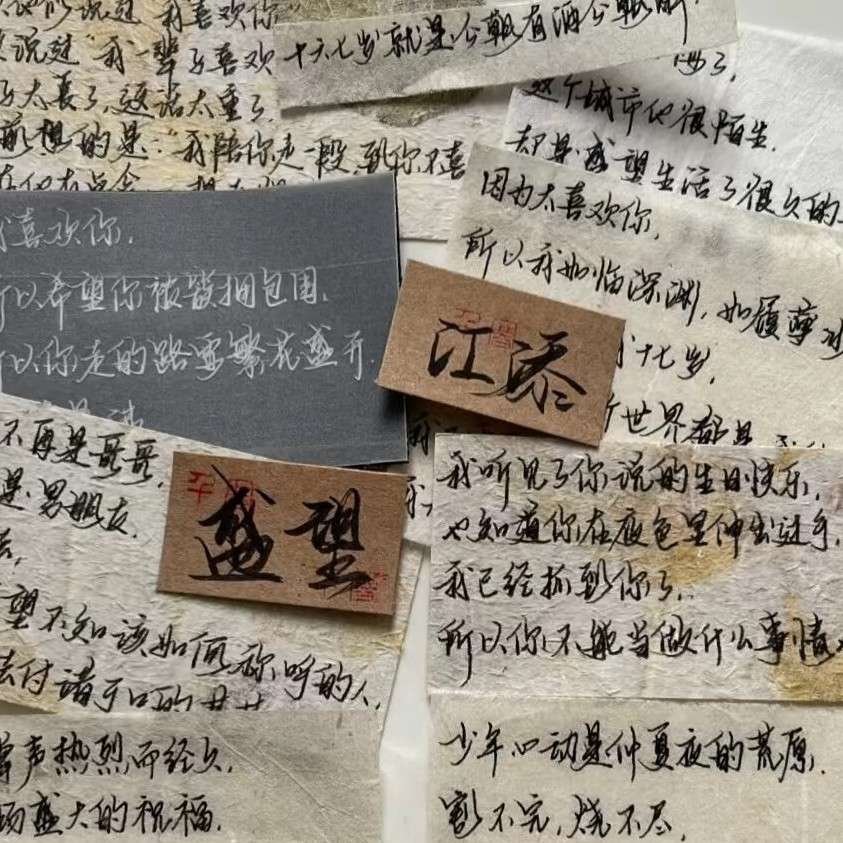 说过“我喜欢你”
说过“我一辈子喜欢
太长了，这话太重了
想的是：“我陪你走一段，到你不喜
十六七岁就是今朝有酒今朝醉
这个城市他很陌生，
却是盛望生活了很久的
因为太喜欢你，
所以我如临深渊，如履薄冰
十七岁，
世界都是
我喜欢你，
所以希望你被簇拥包围，
所以你走的路要繁花盛开，
江添
盛望
不再是哥哥，
是男朋友，
望不知该如何称呼的人，
付诸于口的
我听见了你说的生日快乐，
也知道你在夜色里伸出过手，
我已经抓到你了，
所以你不能当做什么事情
掌声热烈而经久，
场盛大的祝福，
少年心动是仲夏夜的荒原，
割不完，烧不尽，